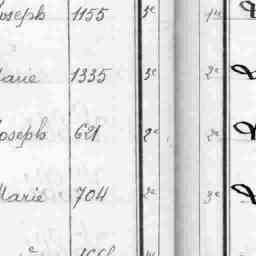 Joseph 1155 3e 1e
Marie 1335 3e 2e
Joseph 621 2e 2e
Marie 704 2e 3e